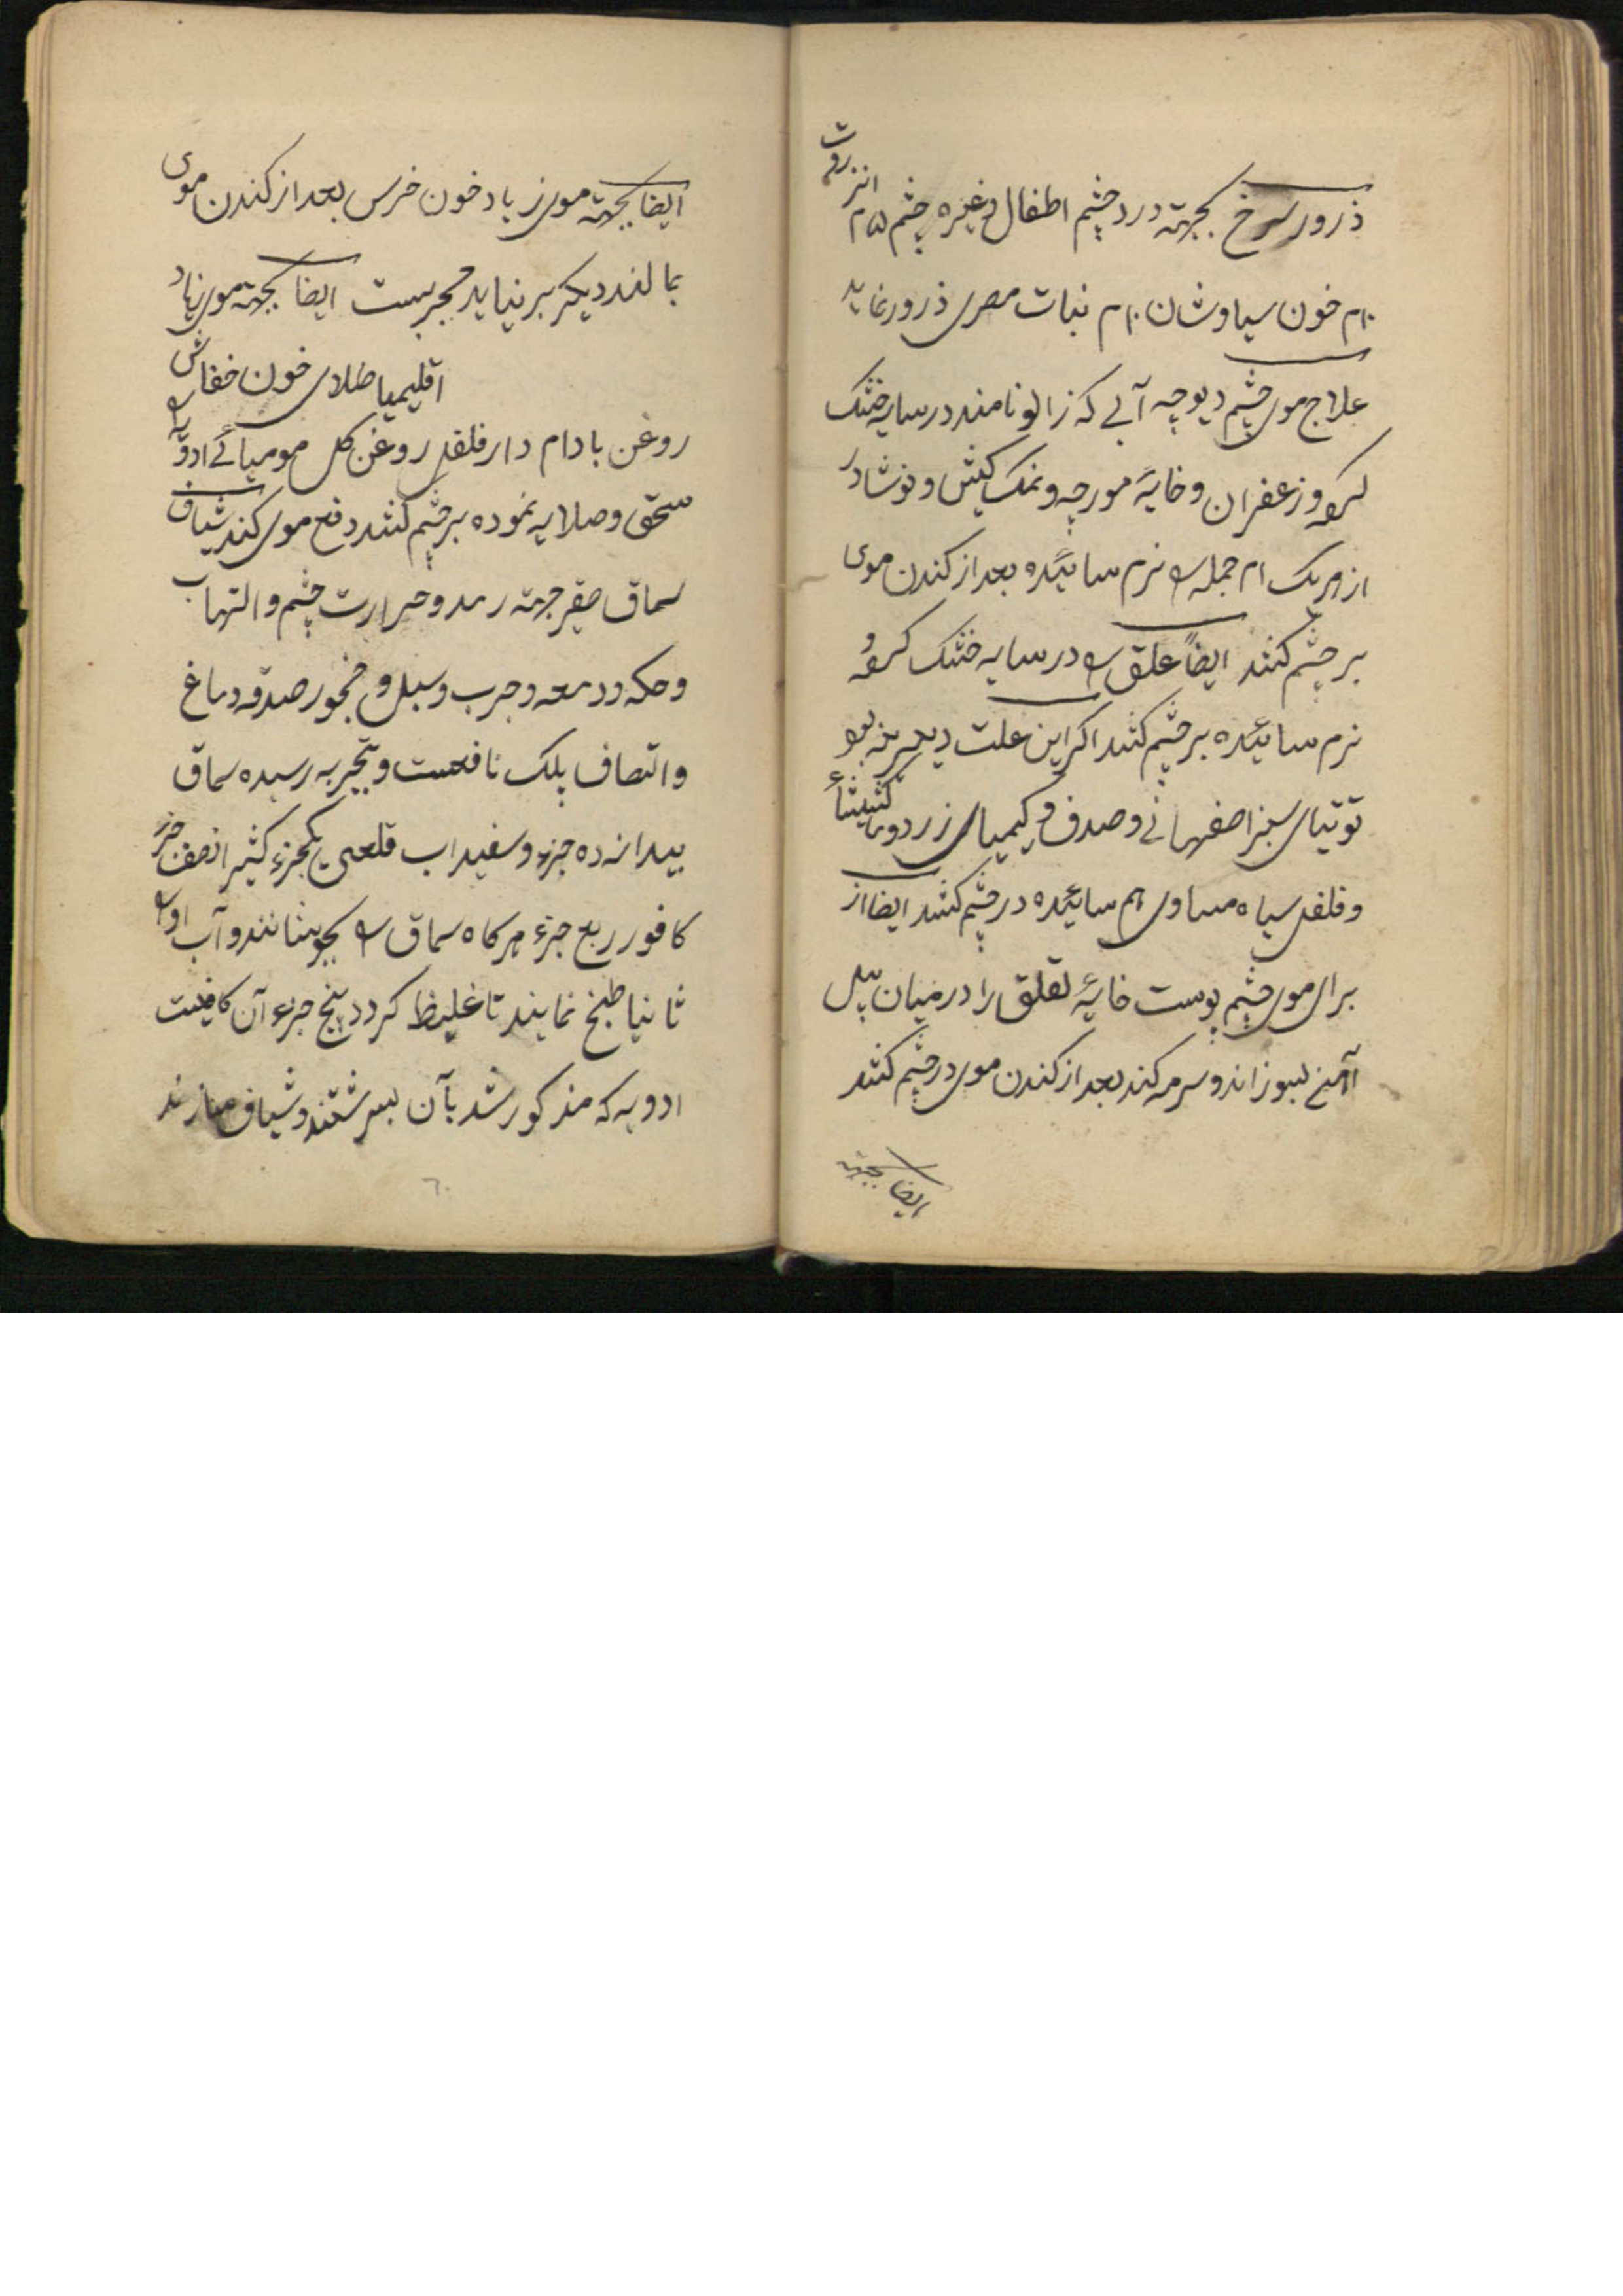 ذرور سرخ بجهته درد چشم اطفال وغیره چشم ۵م انزروت
۱۰م خون سیاوشان ۱۰م نبات مصری ذرور نماید
علاج موی چشم دیوچه آبی که زالو نامند در سایه خشک
کرده وزعفران وخایهٔ مورچه ونمک کیش ونوشادر
از هریک ام جمله را نرم سائیده بعد از کندن موی
بر چشم کنند ایضاً علق را در سایه خشک کرده و
نرم سائیده بر چشم کنند اکر این علت دیرینه بود
توتیای سبز اصفهانی وصدف و کیمیای زرد
وفلفل سیاه مساوی هم سائیده در چشم کنند ایضا از
برای موی چشم پوست خایهٔ لقلق را در میان بیل
آهنی بسوزاند وسرمه کند بعد از کندن موی در چشم کنند
ایضا بجهته
ایضا بجهته موی زیاد خون خرس بعد از کندن موی
بمالند دیکر بر نیاید مجربست ایضا بجهته موی زیاد
اقلیمیا طلای خون خفاش
روغن بادام دارفلفل روغن کل مومیائی ادویه را
سحق وصلایه نموده بر چشم کنند دفع موی کند شیاف
سماق جهته رمد وحرارت چشم والتهاب
وحکه ودمعه وجرب وسبل و صدقه دماغ
والتصاق پلک نافعست وبتجربه رسیده سماق
بیدانه ده جزء وسفیداب قلعی یکجزء کثیرا نصف جزء
کافور ربع جزء هرکاه سماق را بجوشانند وآب او را
ثانیا طبخ نمایند تا غلیظ کردد پنج جزء آن کافیست
ادویه که مذکور شد بآن بسرشتند وشیاف سازند
٦٠